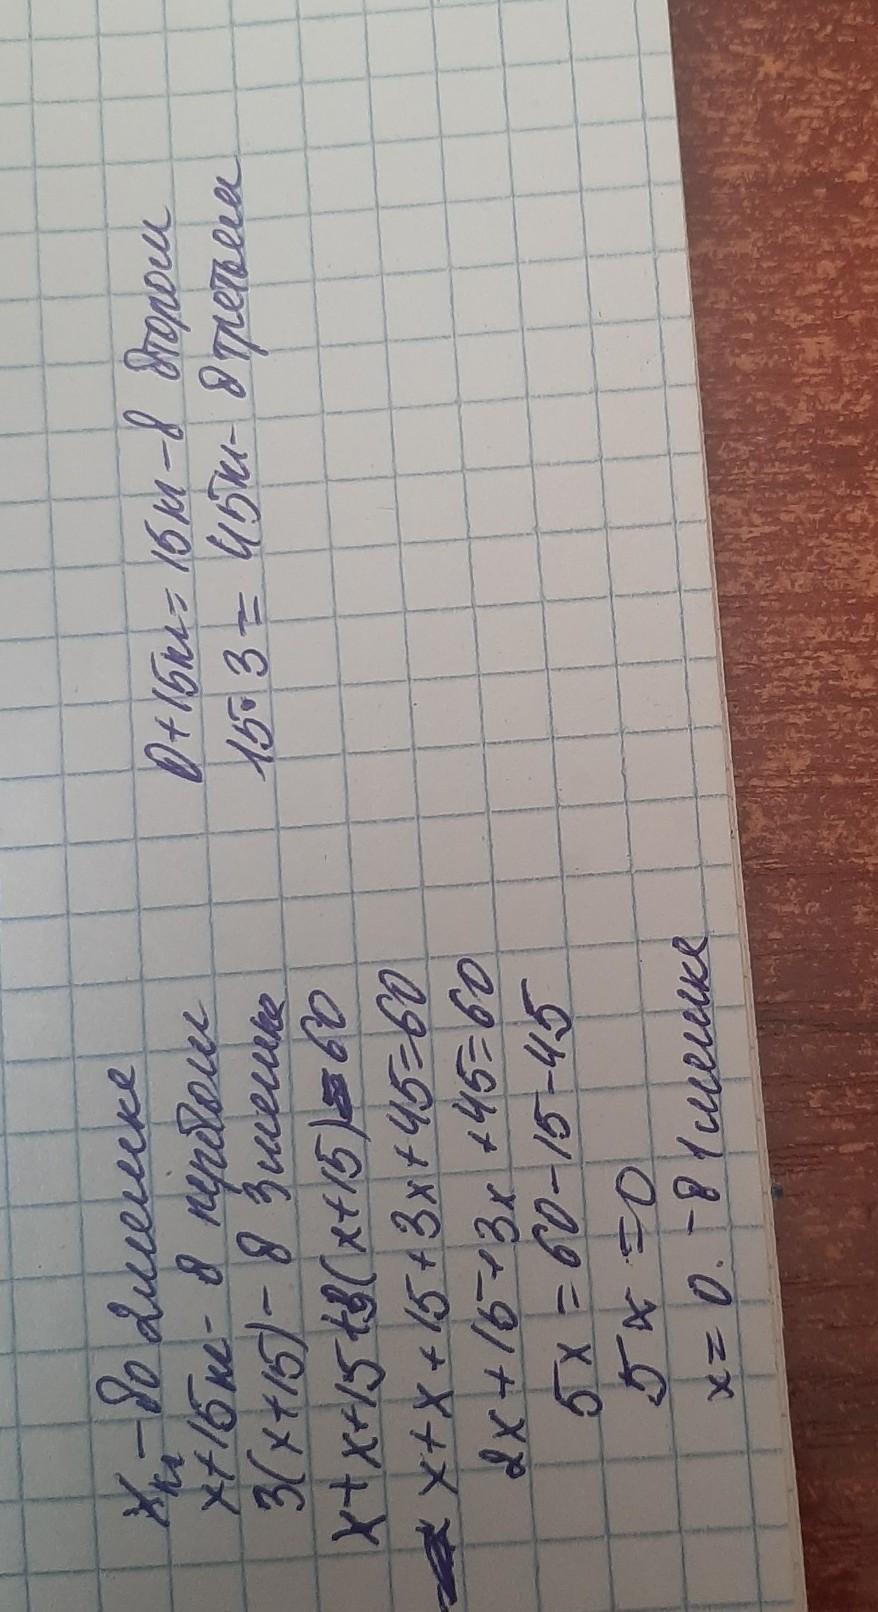 x кг – во 2 мешке
x+15 кг - в первом
3(x+15) – в 3 мешке
x+x+15+3(x+15)=60
x+x+15+3x+45=60
2x+15+3x+45=60
5x=60-15-45
5x=0
x=0. - в 1 мешке
0+15кг=15кг-в втором
15·3=45кг- в третьем